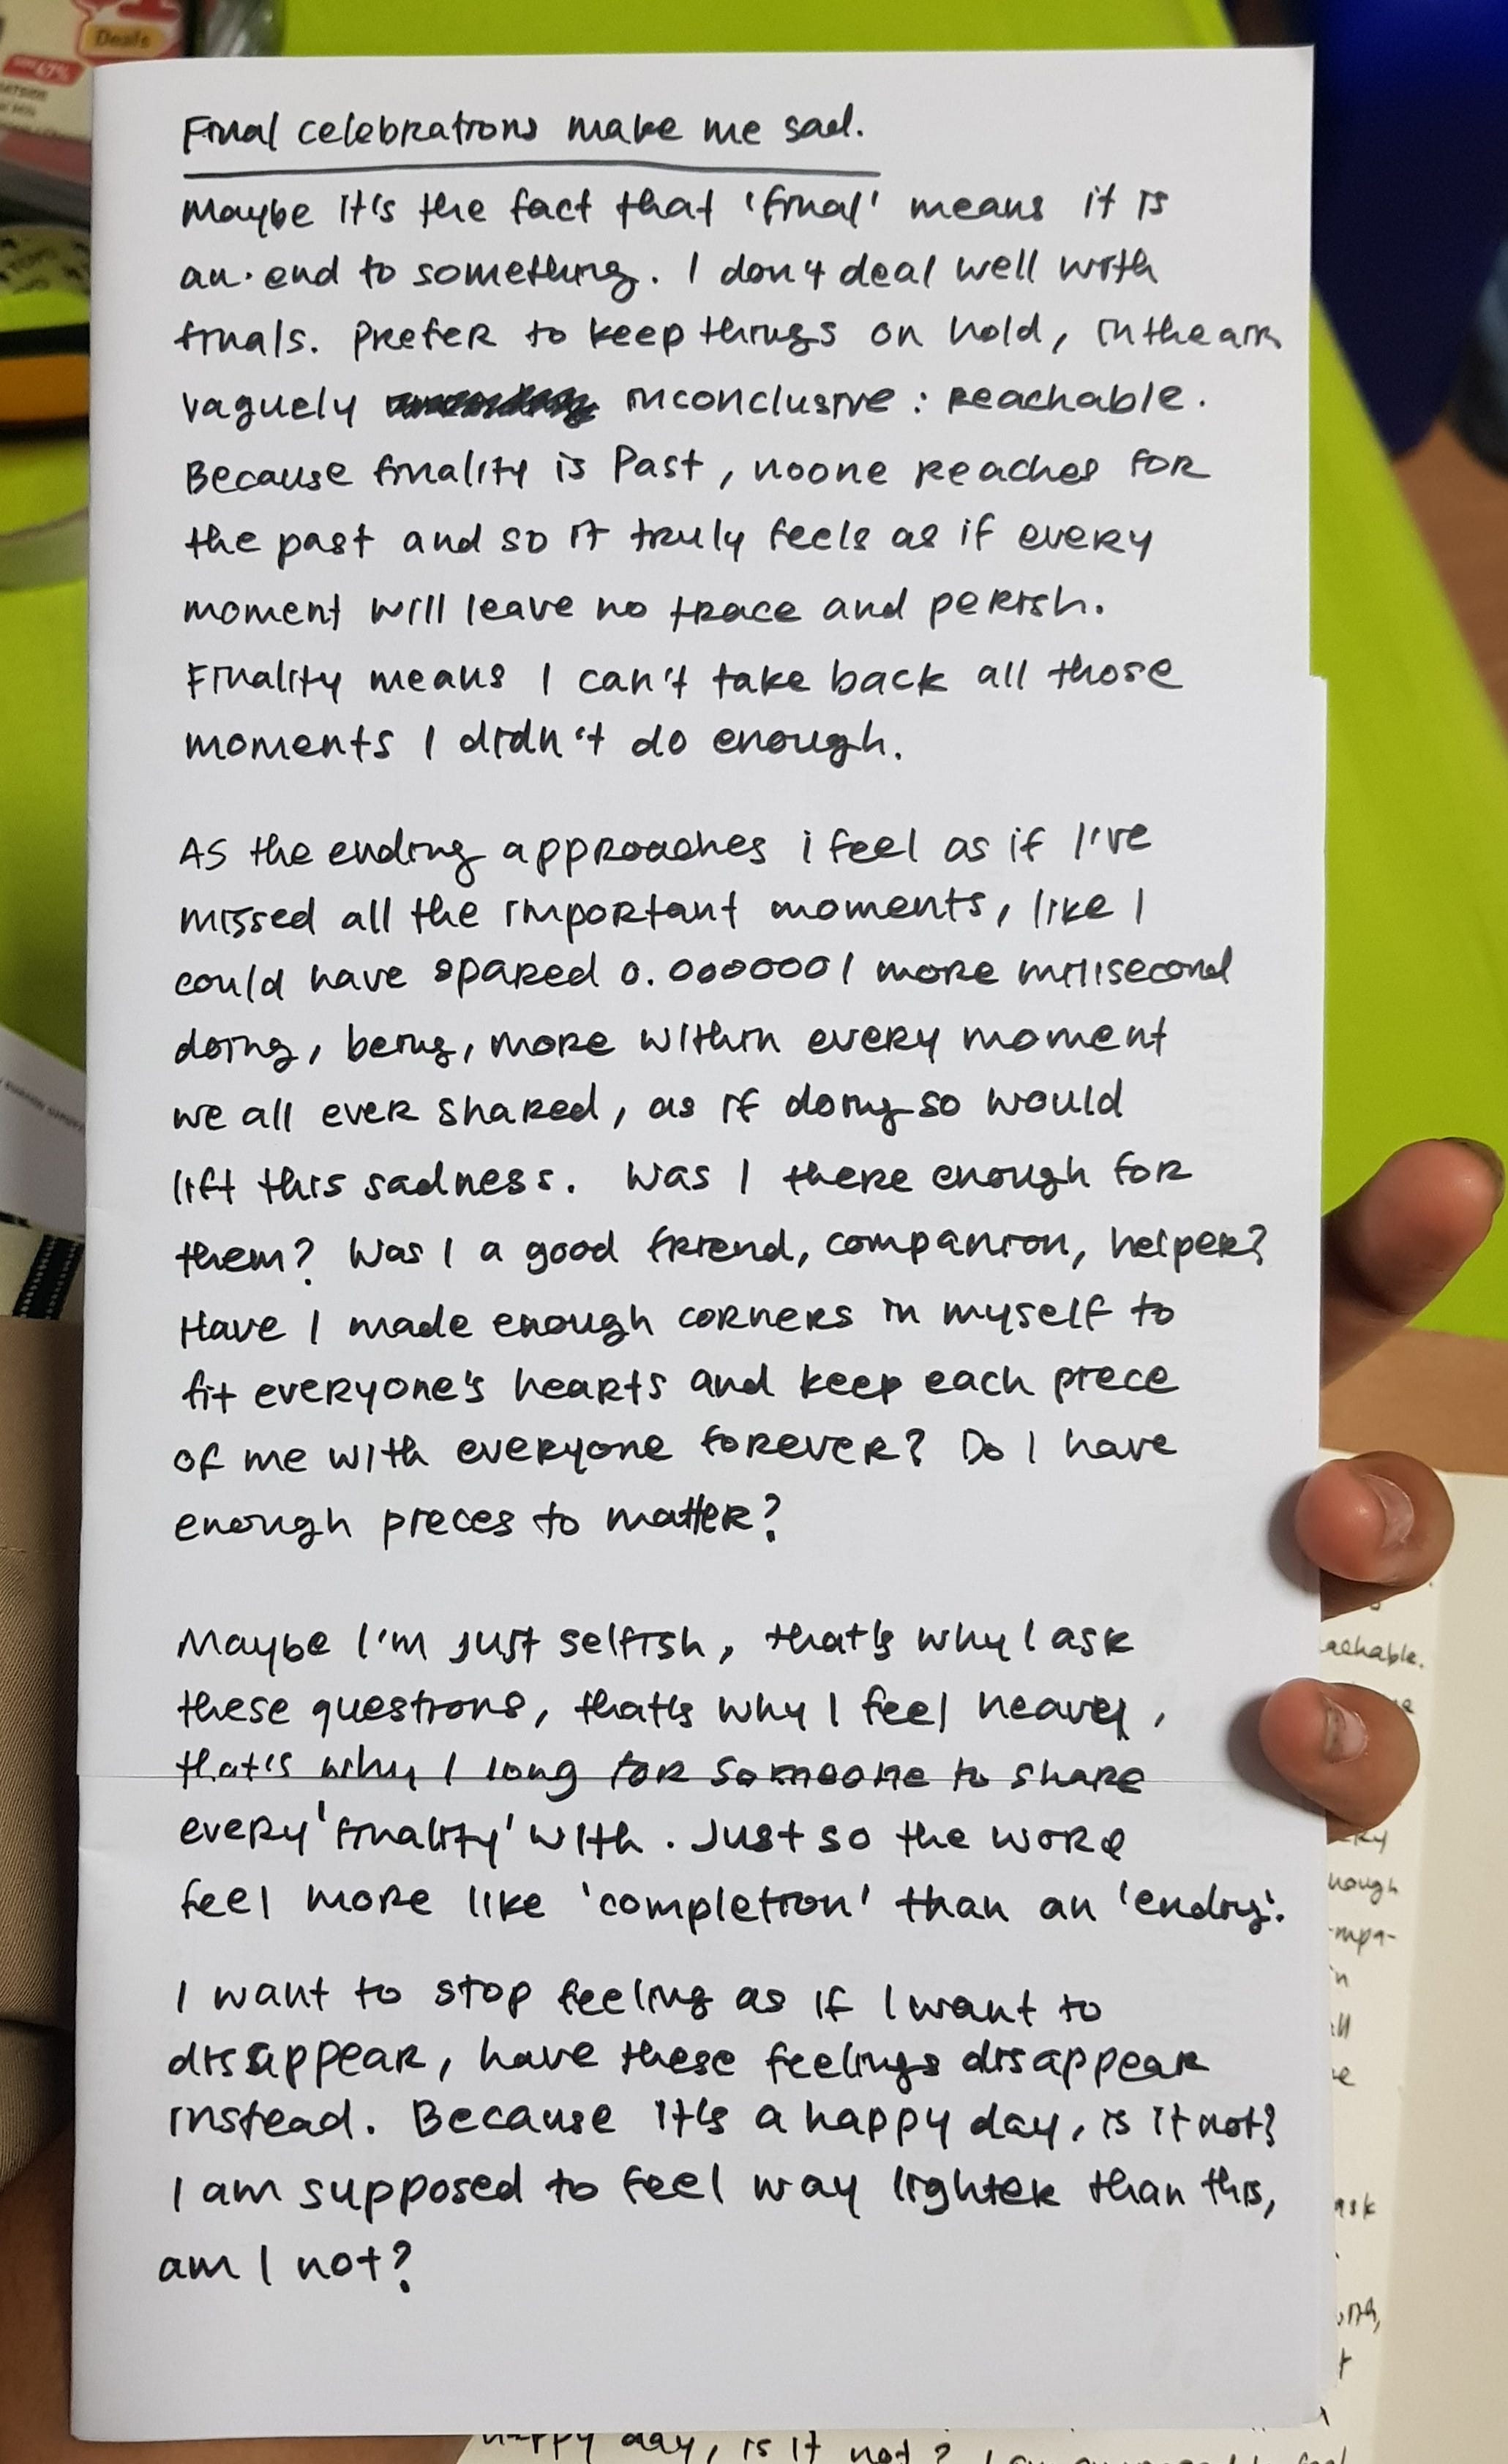 Deals
67%
Final celebrations make me sad.
Maybe it's the fact that 'final' means it is
an end to something. I don't deal well with
finals. Prefer to keep things on hold, in the air,
vaguely inconclusive : reachable.
Because finality is Past, noone reaches for
the past and so it truly feels as if every
moment will leave no trace and perish.
Finality means I can't take back all those
moments I didn't do enough.
As the ending approaches i feel as if I've
missed all the important moments, like I
could have spared 0.0000001 more milisecond
doing, being, more within every moment
we all ever shared, as if doing so would
lift this sadness. Was I there enough for
them? Was I a good friend, companion, helper?
Have I made enough corners in myself to
fit everyone's hearts and keep each piece
of me with everyone forever? Do I have
enough pieces to matter?
Maybe I'm just selfish, that's why I ask
these questions, that's why I feel heavy,
that's why I long for someone to share
every 'finality' with. Just so the word
feel more like 'completion' than an 'ending'.
I want to stop feeling as if I want to
disappear, have these feelings disappear
instead. Because it's a happy day, is it not?
I am supposed to feel way lighter than this,
am I not?
achable.
nough
mpa-
in
ask
happy day, is it not?